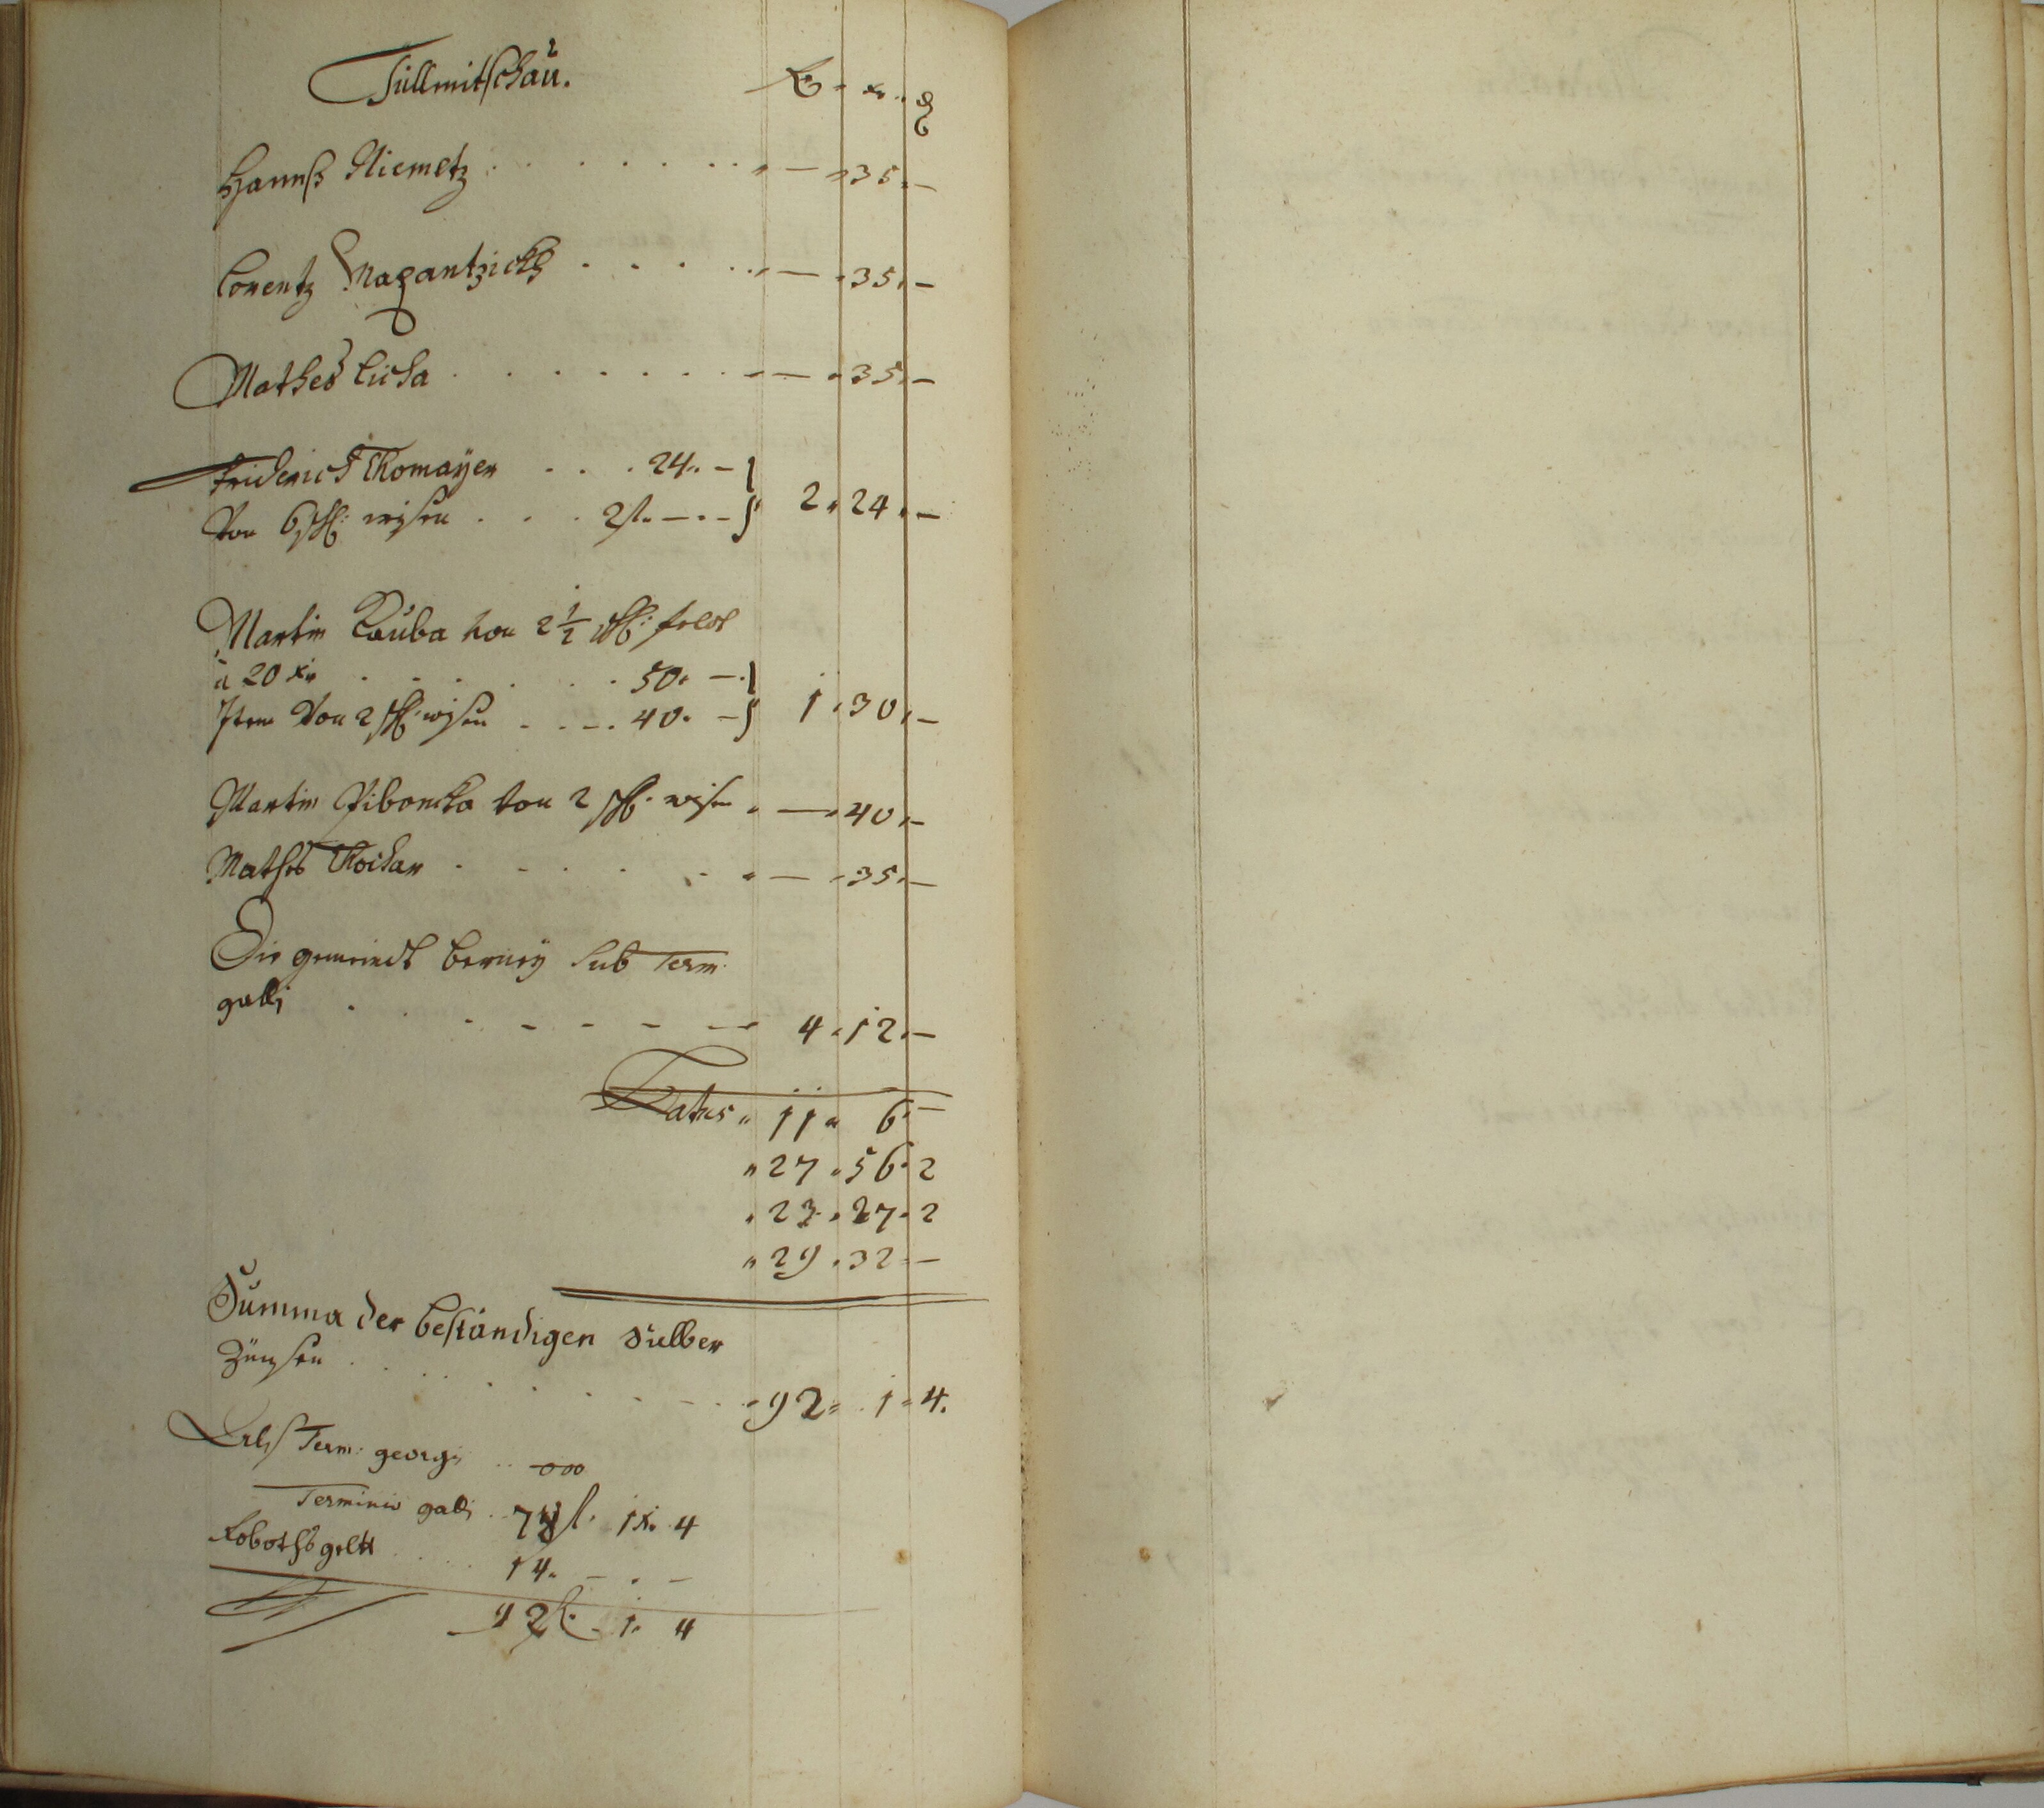 Tüllmitschaü.
f " xr " ₰
Hannß Niemetz . . . . . . . " — " 35 " —
Lorentz . . . . . . " — " 35 " —
Mathes Lücha . . . . . . . — " 35 " —
Friderich Thomayer . . . 24 " —
Von 6 sch: wisen . . . 2 f. — " — 2 " 24 " —
Martin Kauba von 2 1/2 sch: feldt
à 20 xr . . . . . 50 " —
Item Von 2 sch: wisen . . . 40 " — 1 " 30 " —
Martin Ribonicka von 2 sch: wisen " — " 40 " —
Mathes . . . . . . " — " 35 " —
Die gemeindt Sub Term:
galli . . . . . . . 4 " 12 " —
Latus " 11 " 6 " —
" 27 " 56 " 2
" 23 " 27 " 2
" 29 " 32 " —
Summa der beständigen Silber
Zünsen . . . . . . . " 92 " 1 " 4.
Term: georgi . . 000
Terminio galli . . 78 f. 1 x. 4
Roboths geldt . . . . 14 " — . —
92 f. 1 " 4